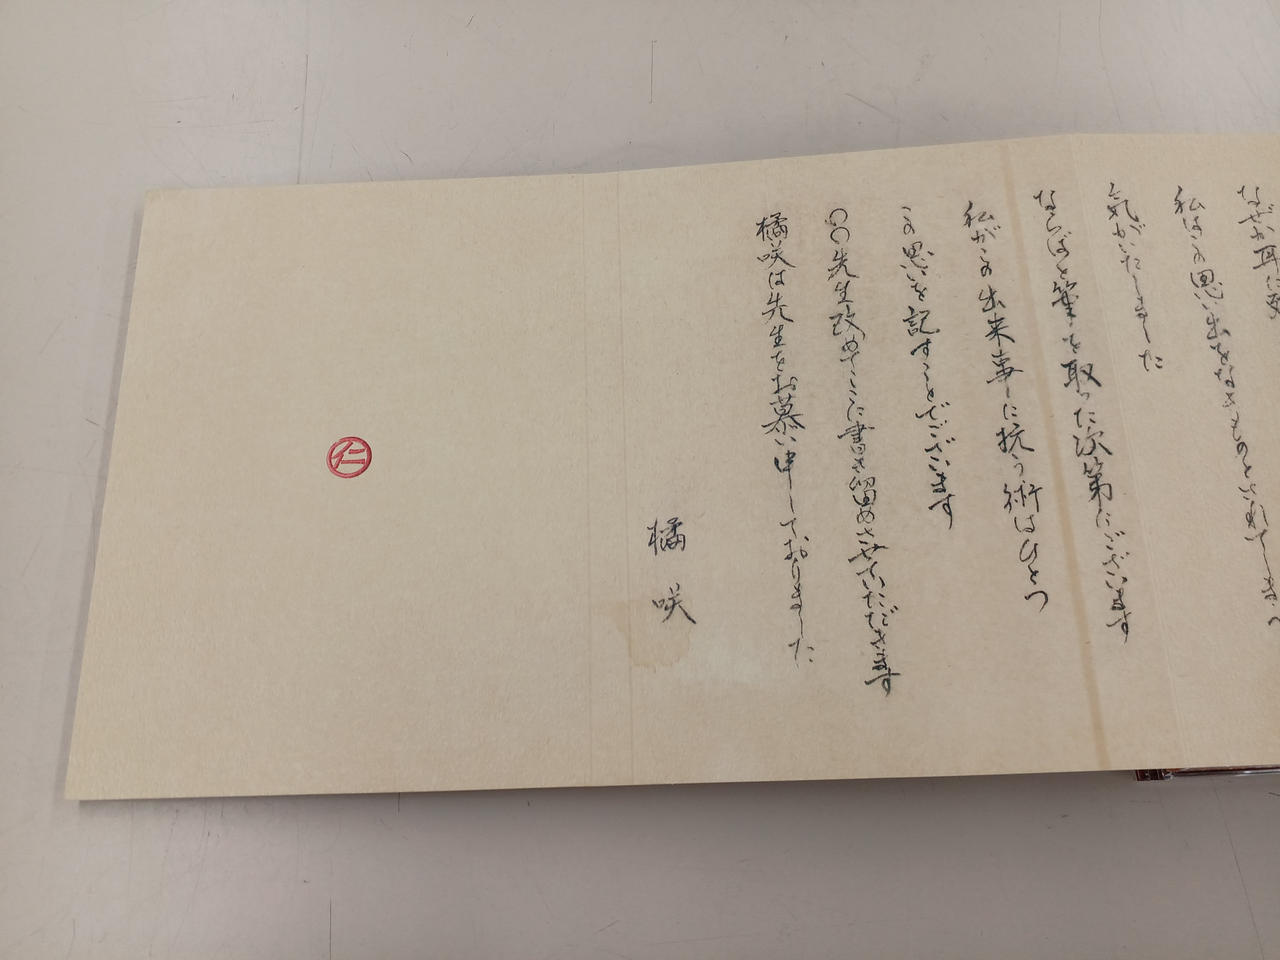 なぜか耳に
私はこの思い出をなきものといたしまう
気がいたしました
ならばと筆を取った次第にございます
私がこの出来事に抗う術はひとつ
この思いを記すことでございます
○○先生改めてここに書き留めさせていただきます
橘咲は先生をお慕い申しておりました
橘 咲
仁